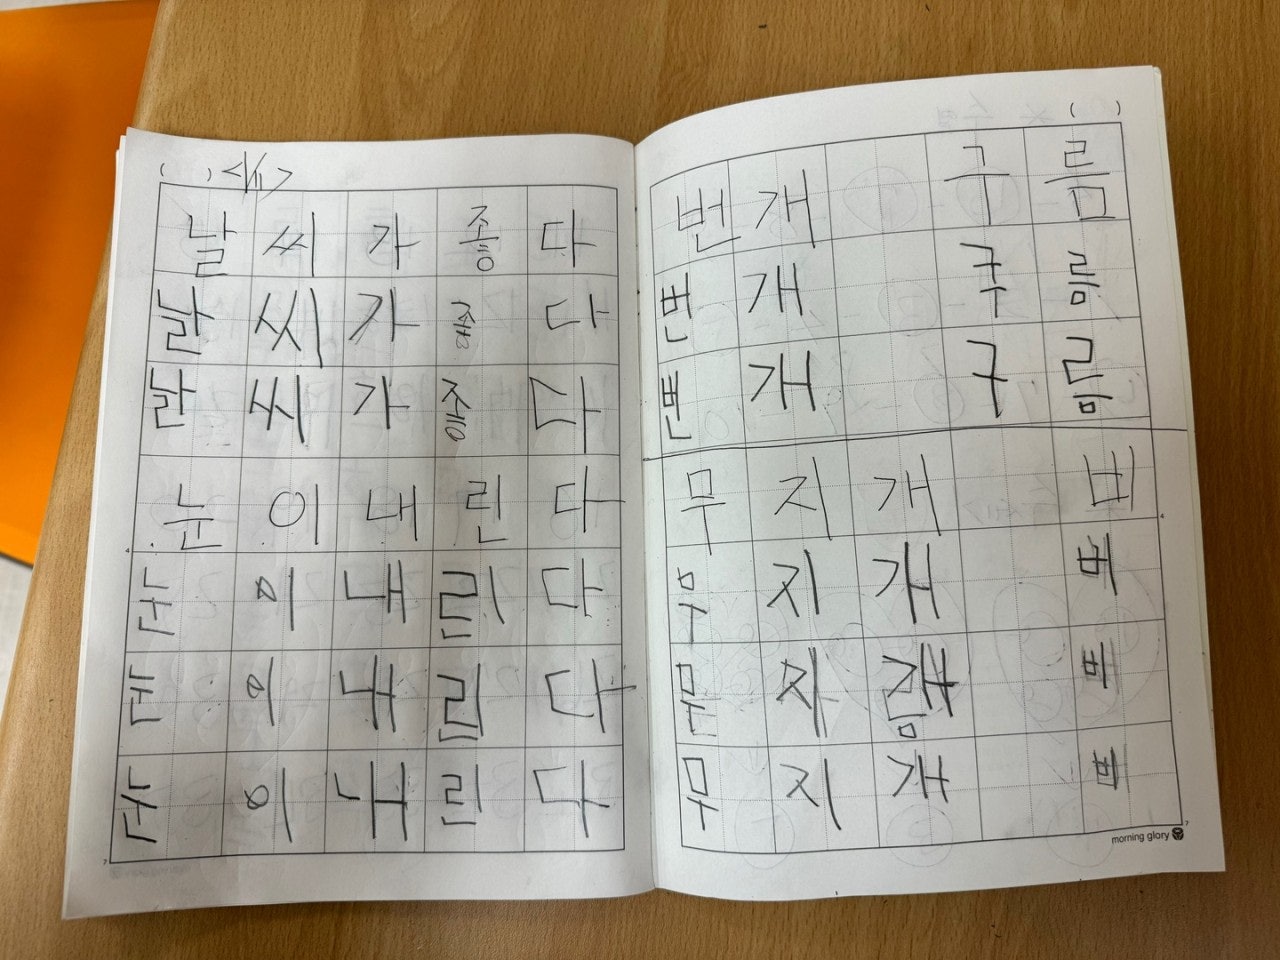 ( ) <1/11>
날 씨 가 좋 다
날 씨 가 좋 다
날 씨 가 좋 다
눈 이 내 린 다
눈 이 내 린 다
눈 이 내 린 다
눈 이 내 린 다
( )
번 개 구 름
번 개 구 름
번 개 구 름
무 지 개 비
무 지 개 비
무 지 개 비
무 지 개 비
morning glory